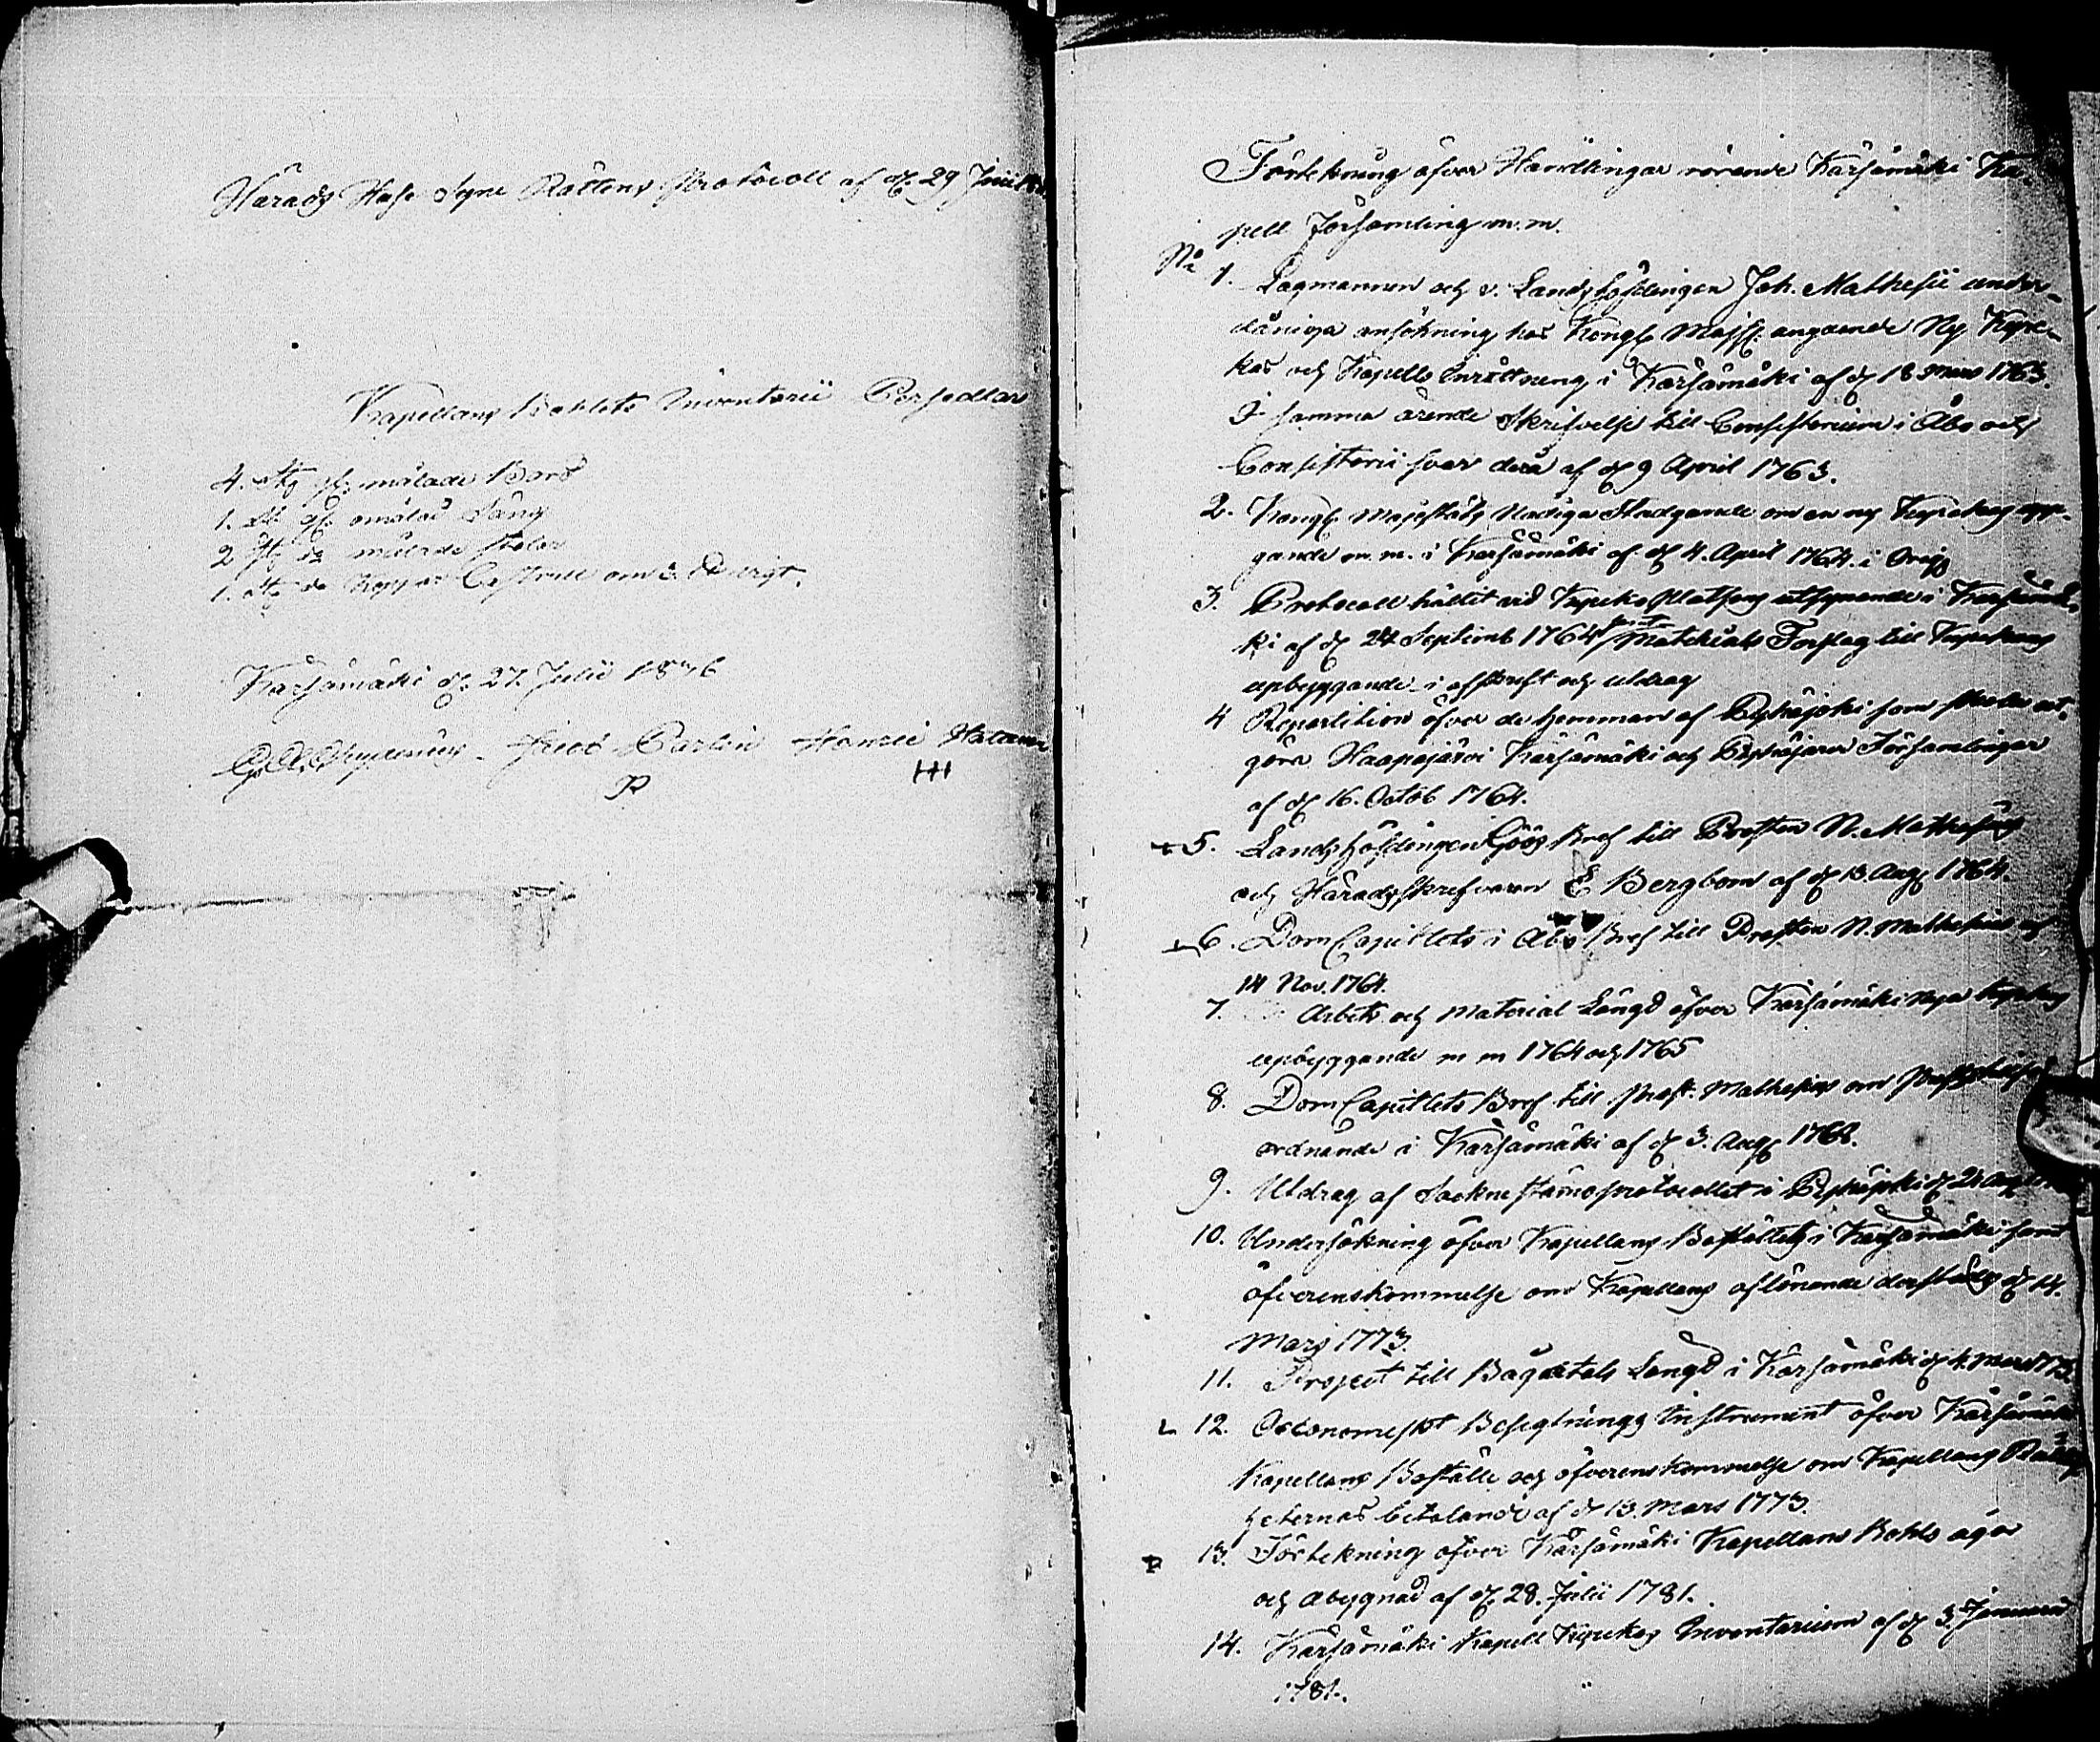 Härads Husesyns Rättens Protocoll af d. 29 Junii
Kapellans Bohlets Inventarii Persedlar
4. st. målade Bord
1. omålad Säng
2 st. do målade Stolar
1. st. do Koppar
Kärsämäki d. 27. Julii 1846
Jacob Parlin Henric
R HH
Förtekning öfver Handlingar rörande Kärsämäki Ka-
pell Församling m. m.
No 1. Lagmannen och v. Landshöfdingen Joh. Mathesii under-
dåniga ansökning hos Kongl. Majst. angående Ny Kyrc-
kas och Kapells inrättning i Kärsämäki af d. 18 Mars 1763.
I samma ärende Skrifvelse till Consistorium i Åbo och
Consistorii svar derå af d. 9 April 1763.
2. Kongl. Majestäts Nådiga Stadgande om en ny Kyrckas upp-
gande m. m. i Kärsämäki af d. 4. April 1764. i Orig.
3. Protocoll hållit vid Kyrko Platsens utsynande i Kärsämä-
ki af d. 24 Septemb 1764 samt Materials Forslag till Kyrckans
upbyggande i afskrift och utdrag
4 Repartition öfver de hemman af Pyhäjoki som skola ut-
göra Haapajärvi Kärsämäki och Pyhäjärvi Församlingar
af d. 16. Octob 1764.
+ 5. Landshöfdingen Bref till Prosten N. Mathesius
och Häradsskrifvaren E Bergbom af d. 13 Aug. 1764.
+ 6. DomCapitlets i Åbo Bref till Prosten N. Mathesius af
14 Nov. 1764.
7. Arbets och Material Längd öfver Kärsämäki nya kyrckas
upbyggande m m 1764 och 1765
8. DomCapitlets Bref till Prost. Mathesius om
ordnande i Kärsämäki af d. 3. Aug. 1768.
9. Utdrag af Sockne stämo protocollet i Pyhäjoki d. 21 Aug
10. Undersökning öfver Kapellans Bostället i Kärsämäki samt
öfverenskommelse om Kapellans aflönande derstädes d. 14.
Mars 1773.
11. Project till Dagatals Längd i Kärsämäki d. 4. Mars 1773.
12. Oeconomiskt Besigtnings instrument öfver Kärsämäki
Kapellans Boställe och öfverenskommelse om Kapellans Rättig-
heternas betalande af d. 13. Mars 1773.
13. Förtekning öfver Kärsämäki Kapellans Bohls ägor
och åbygnad af d. 28. Julii 1781.
14. Kärsämäki Kapell Kyrckas Inventarium af d. 3. Januarii
1781.